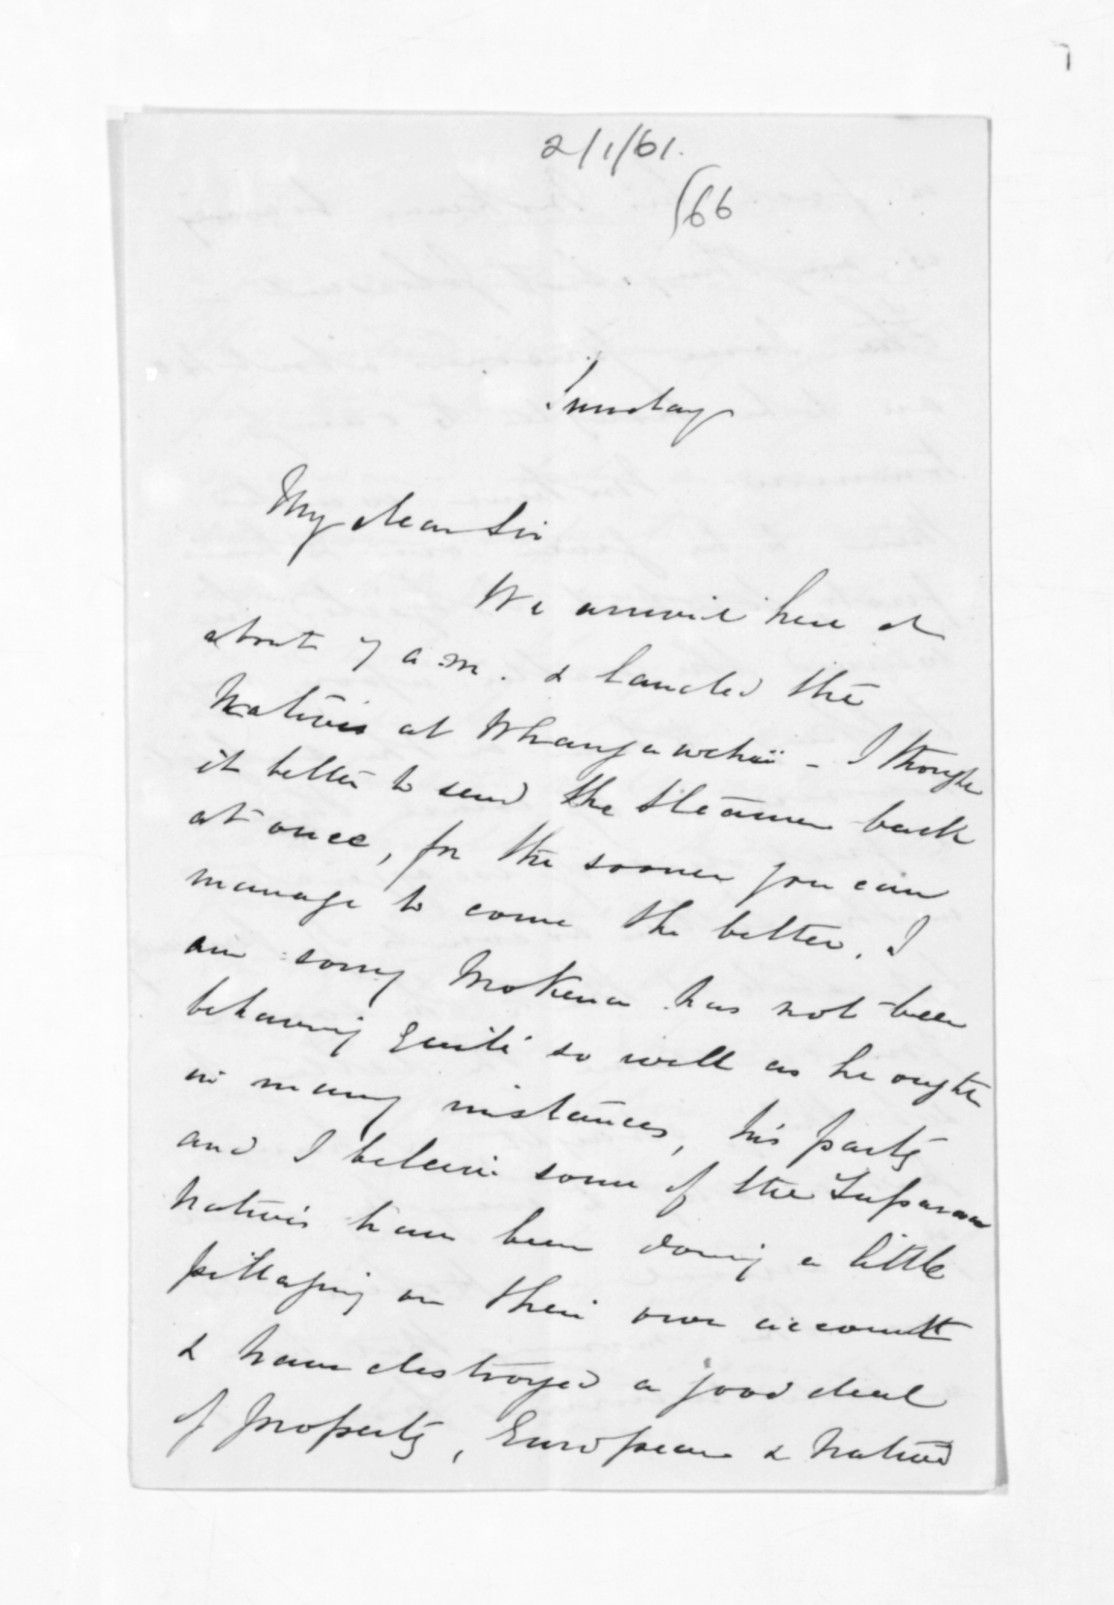 2/1/61.
(66
Sunday
My dear Sir
We arrived here at
about 7 a.m. & landed the
Natives at Whangawehi - I thought
it better to send the steamer back
at once, for the sooner you can
manage to come the better. I
am sorry Mokena has not been
behaving quite so well as he ought
in many instances, his party
and I beleive some of the Tuparoa
natives have been doing a little
pillaging on their own account
& have destroyed a good deal
of property, European & Native